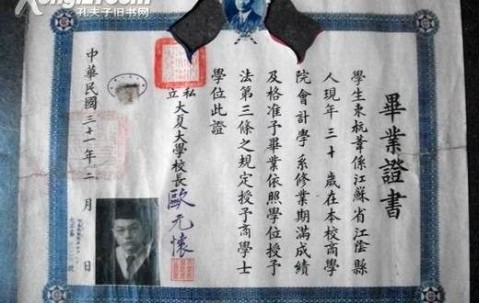 孔夫子旧书网
畢業證書
學生束杭葦係江蘇省江陰縣
人現年三十歲在本校商學
院會計學系修業期滿成績
及格准予畢業依照學位授予
法第三條之規定授予商學士
學位此證
私立大夏大學校長歐元懷
中華民國三十一年二月 日